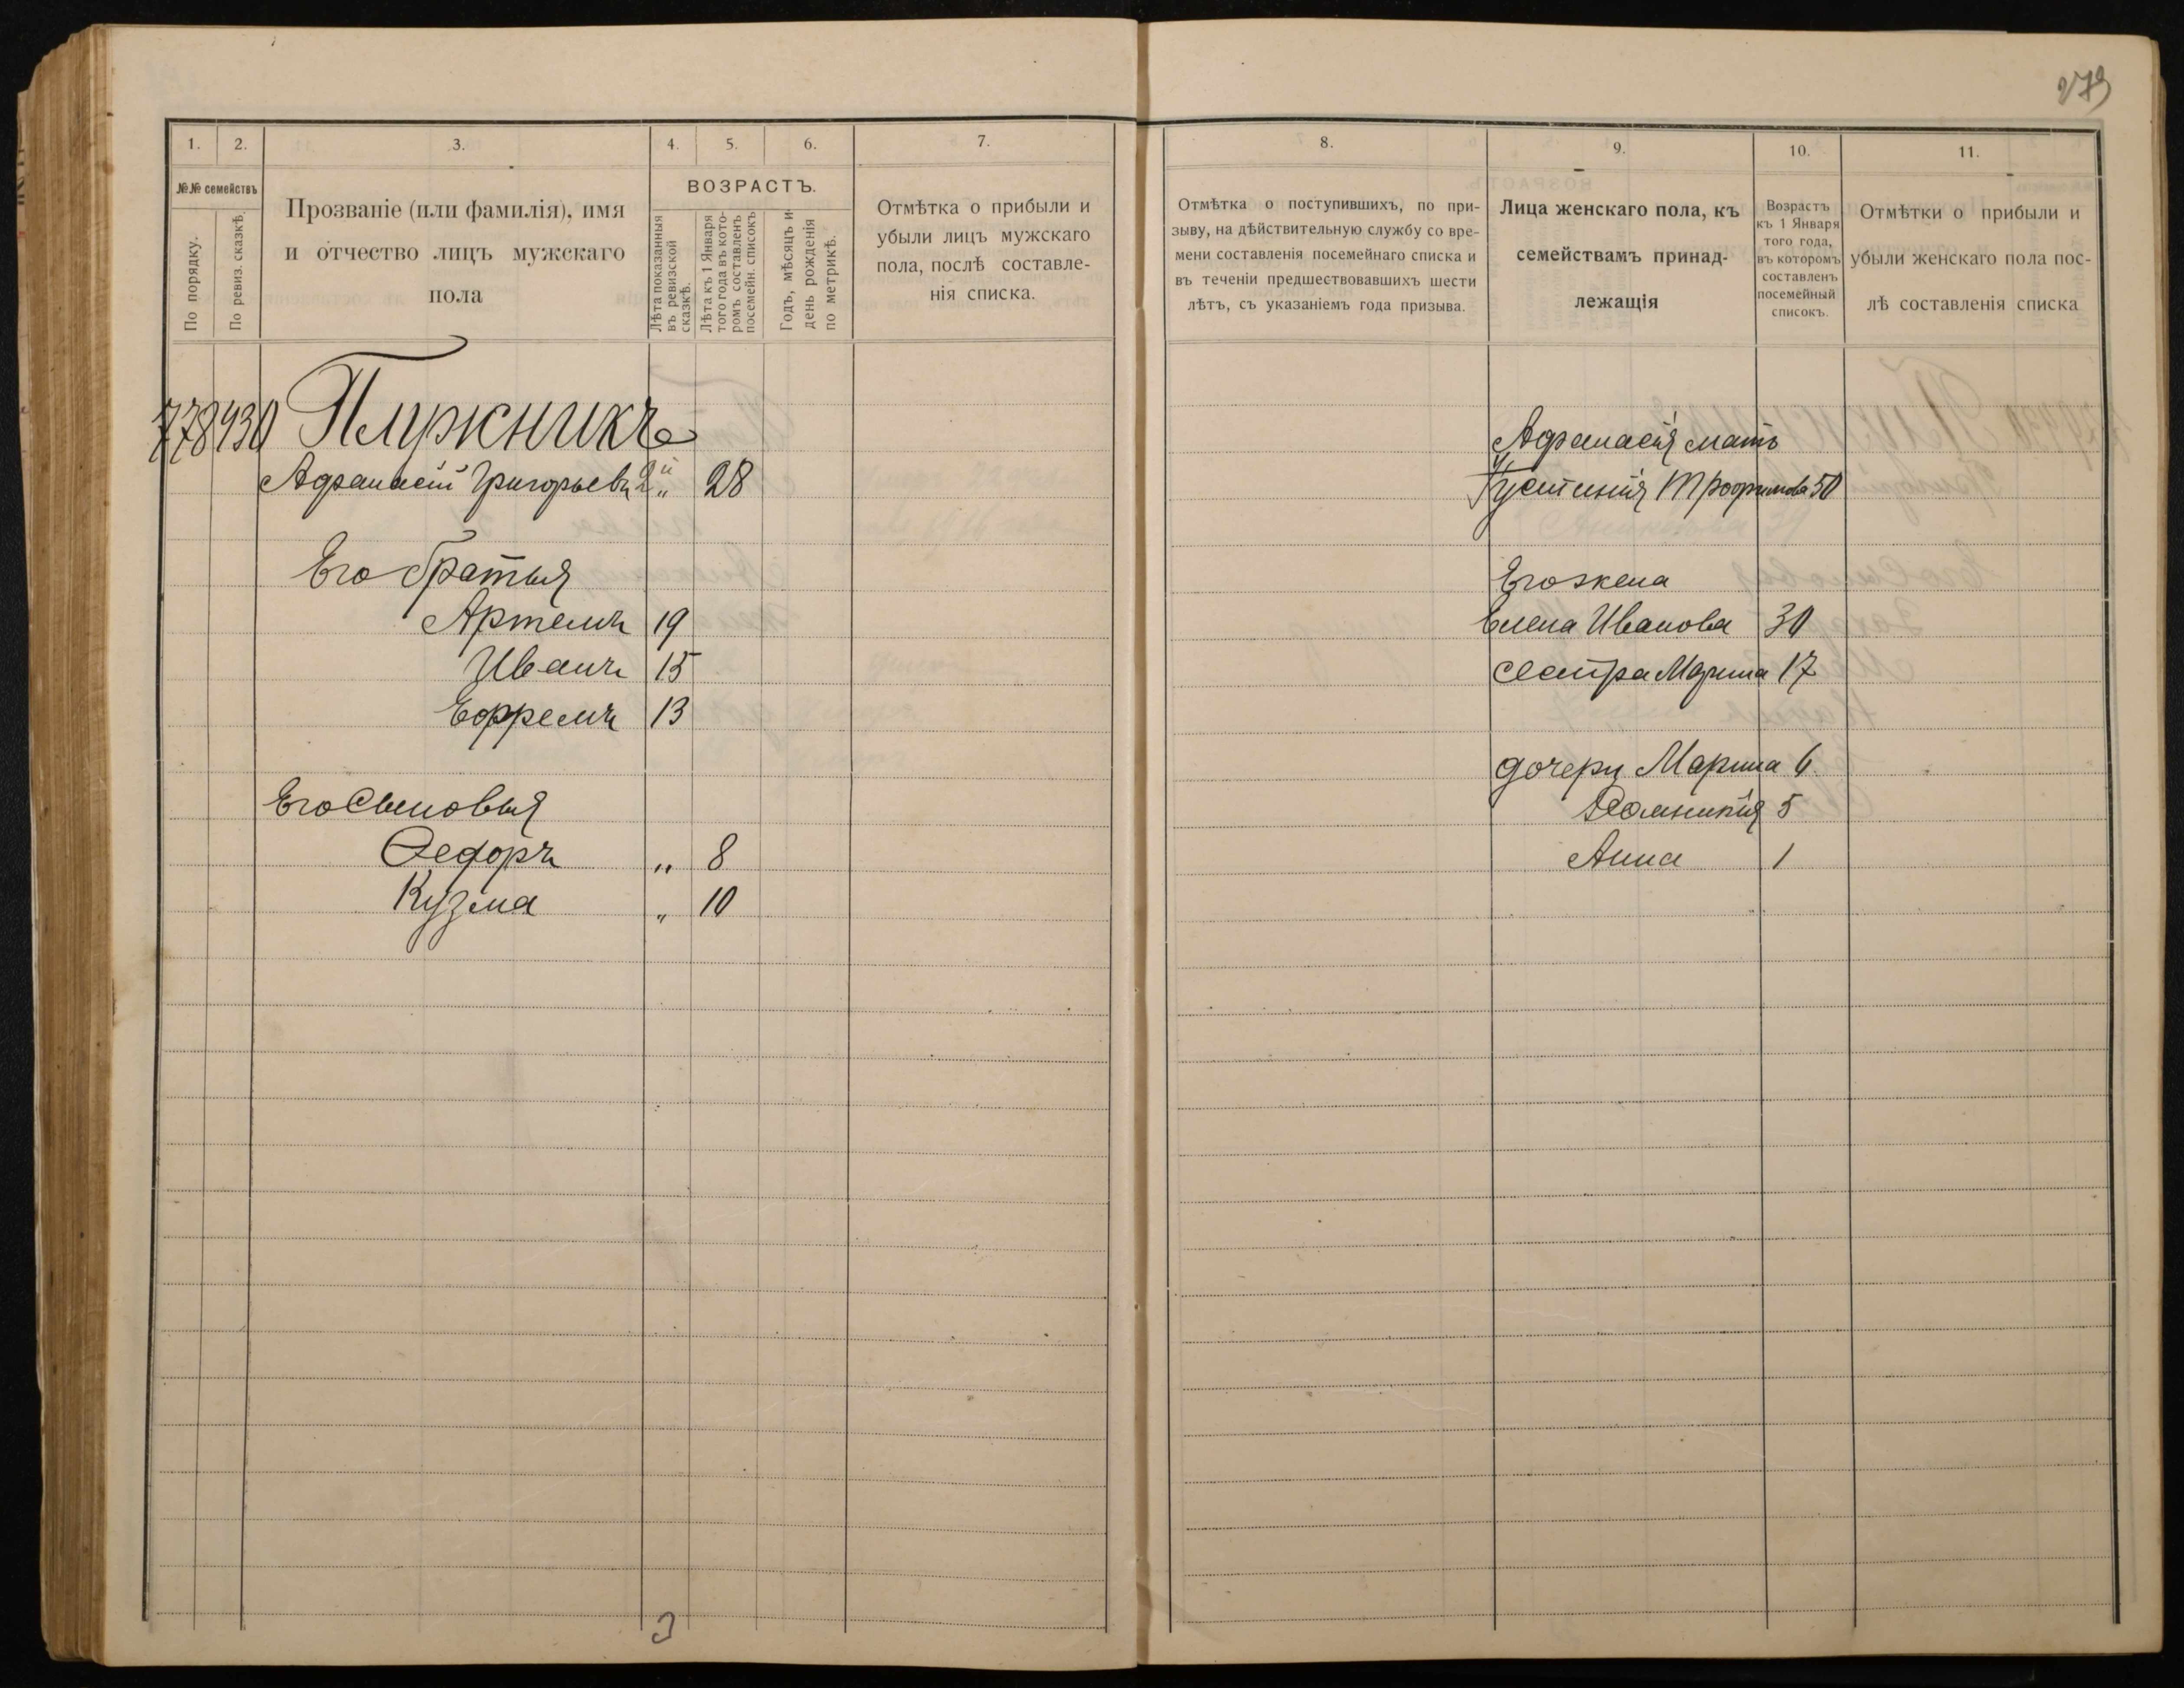 279
1. 2. 3. 4. 5. 6. 7.
№№ семействъ
По порядку.
По ревиз. сказкѣ.
Прозваніе (или фамилія), имя
и отчество лицъ мужскаго
пола
ВОЗРАСТЪ.
Лѣта показанныя
въ ревизской
сказкѣ.
Лѣта къ 1 Января
того года въ кото-
ромъ составленъ
посемейн. списокъ
Годъ, мѣсяцъ и
день рожденія
по метрикѣ.
Отмѣтка о прибыли и
убыли лицъ мужскаго
пола, послѣ составле-
нія списка.
778 430 Плужникъ
Афанасій Григорьевъ 2й „ 28
Его братья
Артемъ 19
Иванъ 15
Ефремъ 13
Его Сыновья
Федоръ „ 8
Кузма „ 10
8. 9. 10. 11.
Отмѣтка о поступившихъ, по при-
зыву, на дѣйствительную службу со вре-
мени составленія посемейнаго списка и
въ теченіи предшествовавшихъ шести
лѣтъ, съ указаніемъ года призыва.
Лица женскаго пола, къ
семействамъ принад-
лежащія
Возрастъ
къ 1 Января
того года,
въ которомъ
составленъ
посемейный
списокъ.
Отмѣтки о прибыли и
убыли женскаго пола пос-
лѣ составленія списка
Афанасія мать
Устинія Трофимова 50
Его жена
Елена Иванова 30
Сестра Марина 17
дочери Марина 6
Домникія 5
Анна 1